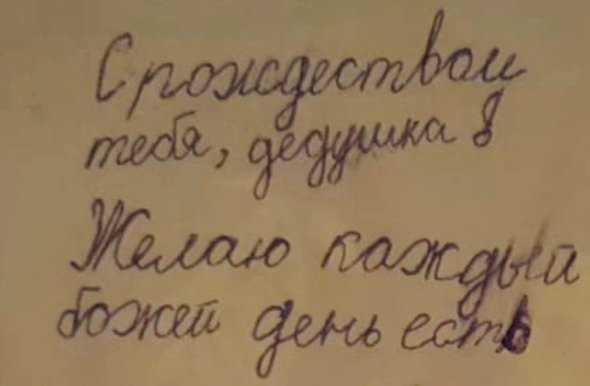 С рождеством
тебя, дедушка!
Желаю каждый
божей день есть